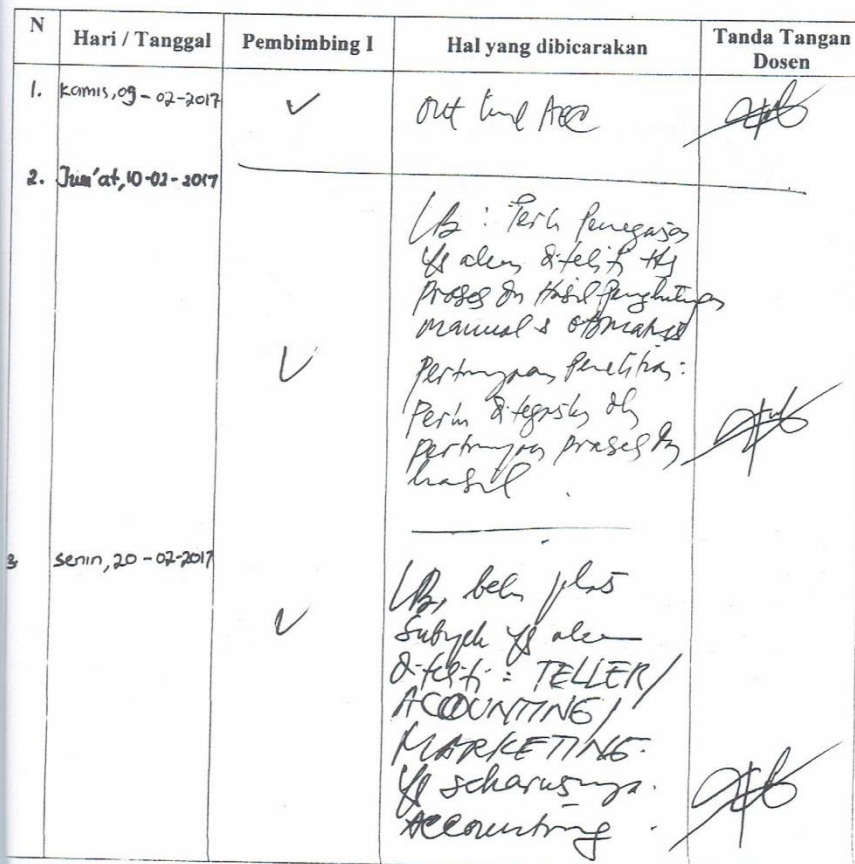 N Hari / Tanggal Pembimbing I Hal yang dibicarakan Tanda Tangan Dosen
1. Kamis, 09-02-2017 Out line Acc
2. Jum'at, 10-02-2017
LB : Perlu Penegasan
yg akan diteliti ttg
proses dn Hasil Penghitungan
manual & otomatis
Pertanyaan Penelitian:
Perlu ditegaskan
pertanyaan proses dn
hasil.
3. Senin, 20-02-2017
LB, belum jelas
Subyek yg akan
diteliti : TELLER/
ACCOUNTING/
MARKETING.
Yg seharusnya.
Accounting.